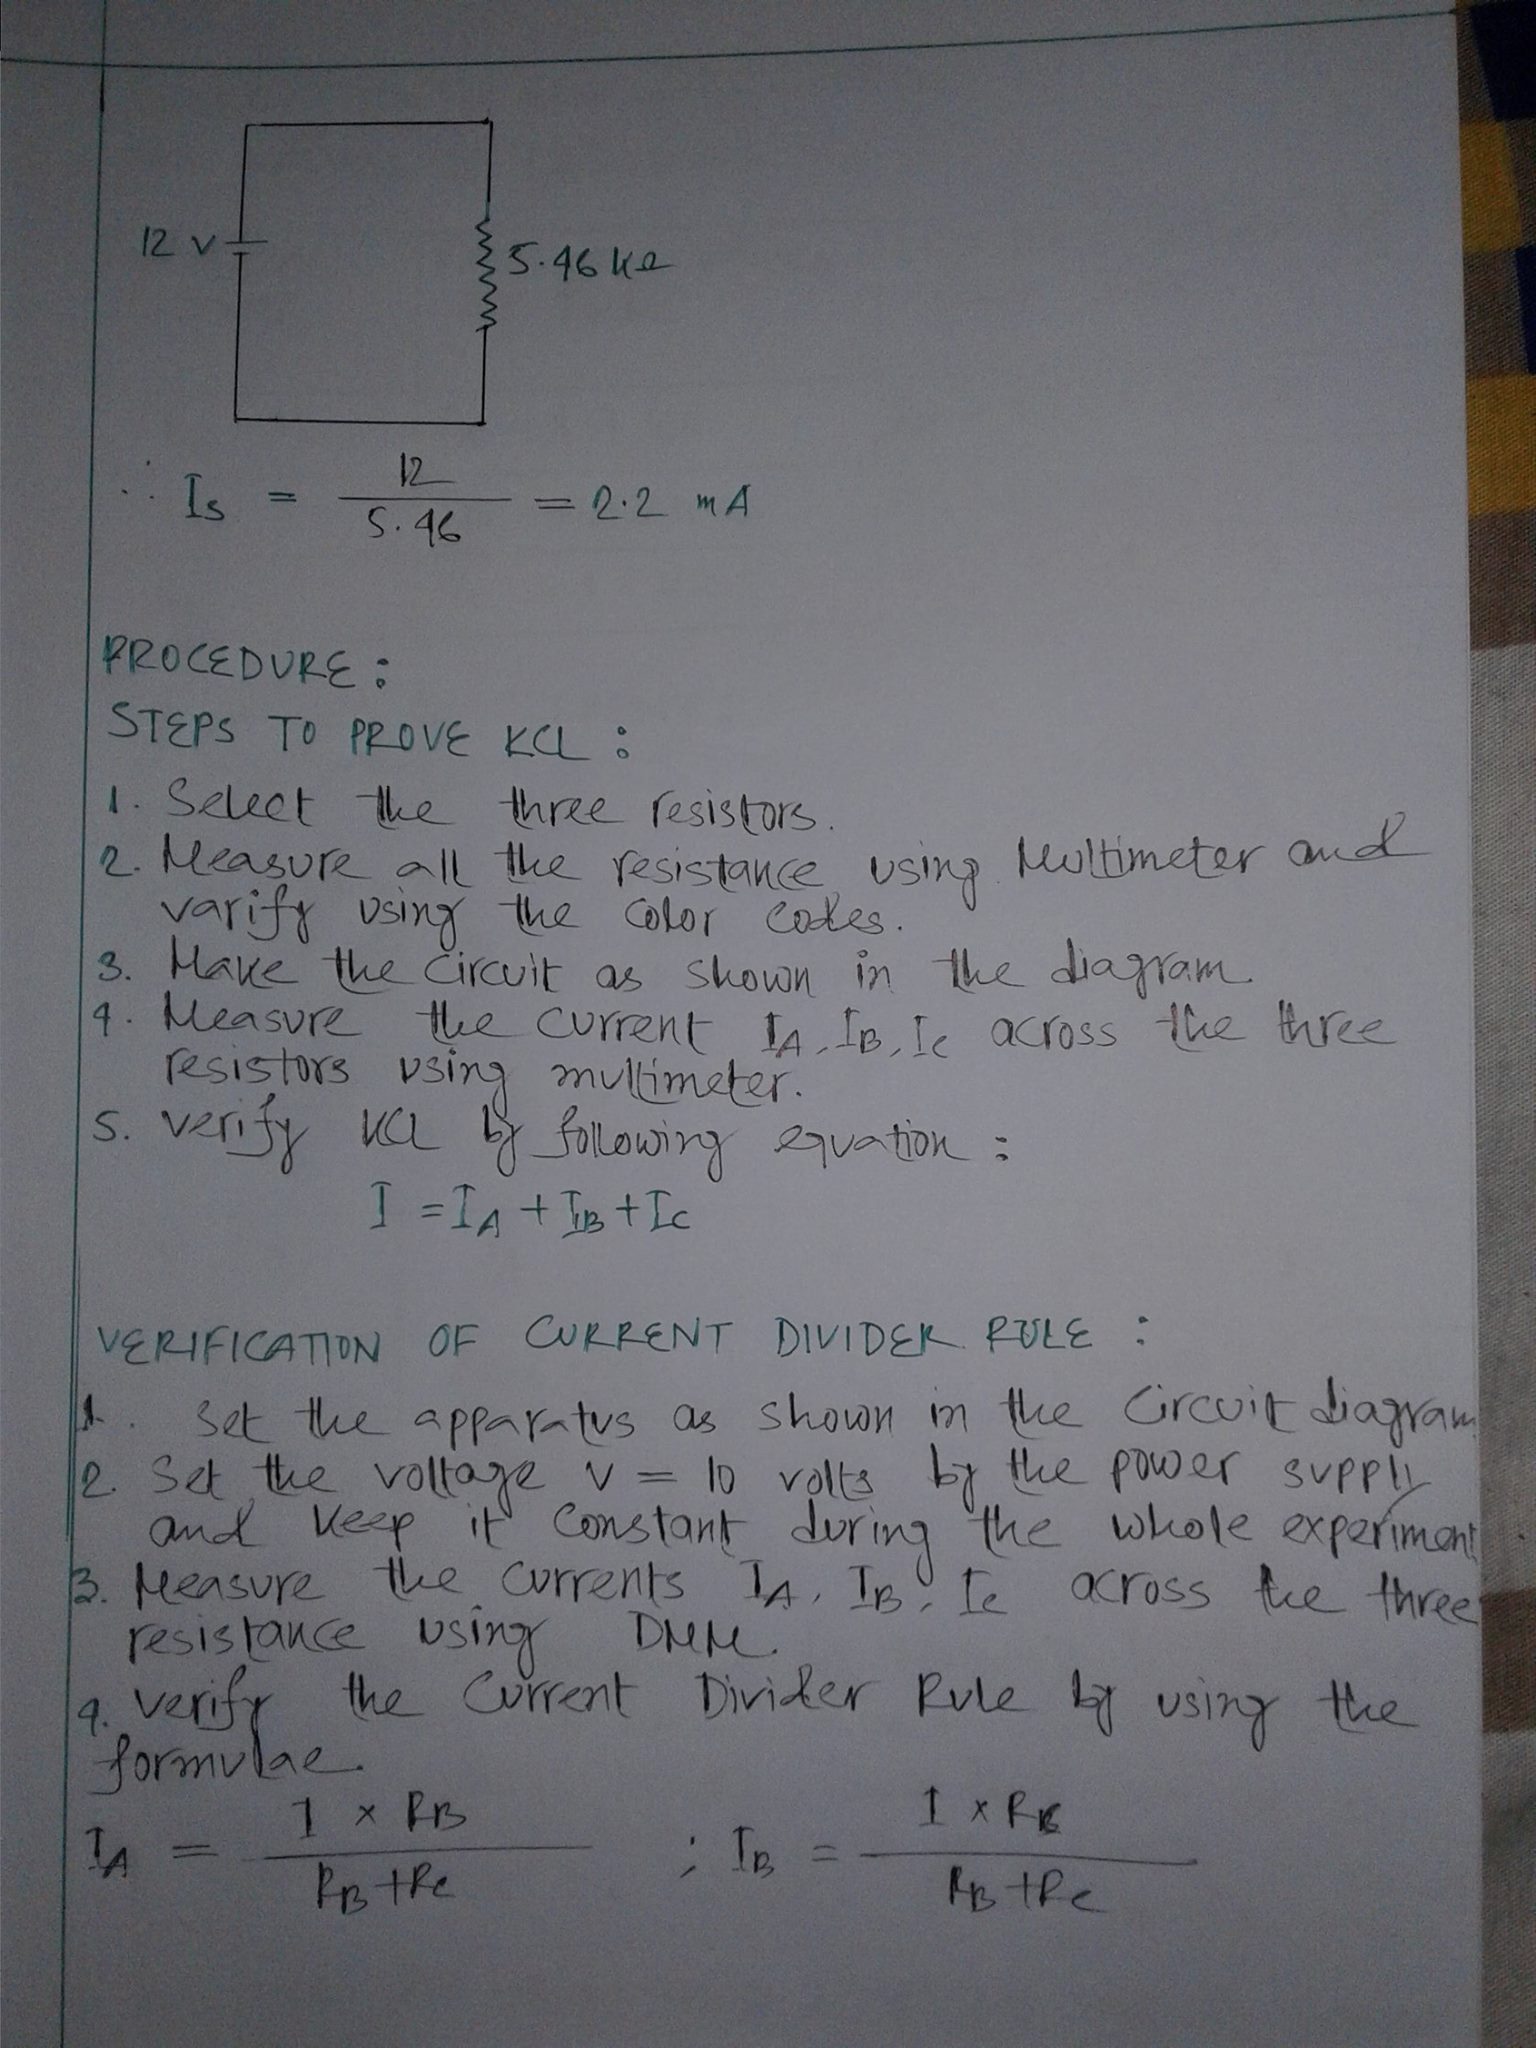 12 V
5.46 kΩ
∴ Is = 12 / 5.46 = 2.2 mA
PROCEDURE:
STEPS TO PROVE KCL:
1. Select the three resistors.
2. Measure all the resistance using Multimeter and
varify using the color codes.
3. Make the circuit as shown in the diagram
4. Measure the current IA, IB, IC across the three
resistors using multimeter.
5. verify KCL by following equation:
I = IA + IB + IC
VERIFICATION OF CURRENT DIVIDER RULE:
1. Set the apparatus as shown in the Circuit diagram
2. Set the voltage V = 10 volts by the power supply
and keep it constant during the whole experiment
3. Measure the currents IA, IB, IC across the three
resistance using DMM.
4. Verify the Current Divider Rule by using the
formulae.
IA = I × RB / RB + RC ; IB = I × RC / RB + RC